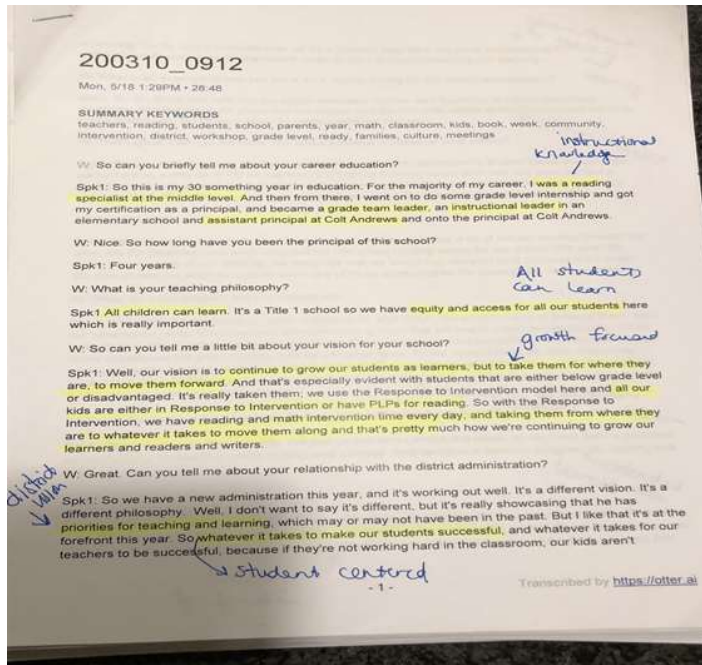 200310_0912
Mon, 5/18 1:29PM • 26:48
SUMMARY KEYWORDS
teachers, reading, students, school, parents, year, math, classroom, kids, book, week, community,
intervention, district, workshop, grade level, ready, families, culture, meetings
instructional
knowledge
W: So can you briefly tell me about your career education?
Spk1: So this is my 30 something year in education. For the majority of my career, I was a reading
specialist at the middle level. And then from there, I went on to do some grade level internship and got
my certification as a principal, and became a grade team leader, an instructional leader in an
elementary school and assistant principal at Colt Andrews and onto the principal at Colt Andrews.
W: Nice. So how long have you been the principal of this school?
Spk1: Four years.
W: What is your teaching philosophy?
All students
can learn
Spk1 All children can learn. It's a Title 1 school so we have equity and access for all our students here
which is really important.
W: So can you tell me a little bit about your vision for your school?
growth focused
Spk1: Well, our vision is to continue to grow our students as learners, but to take them for where they
are, to move them forward. And that's especially evident with students that are either below grade level
or disadvantaged. It's really taken them; we use the Response to Intervention model here and all our
kids are either in Response to Intervention or have PLPs for reading. So with the Response to
Intervention, we have reading and math intervention time every day, and taking them from where they
are to whatever it takes to move them along and that's pretty much how we're continuing to grow our
learners and readers and writers.
W: Great. Can you tell me about your relationship with the district administration?
district
vision
Spk1: So we have a new administration this year, and it's working out well. It's a different vision. It's a
different philosophy. Well, I don't want to say it's different, but it's really showcasing that he has
priorities for teaching and learning, which may or may not have been in the past. But I like that it's at the
forefront this year. So whatever it takes to make our students successful, and whatever it takes for our
teachers to be successful, because if they're not working hard in the classroom, our kids aren't
student centered
- 1 -
Transcribed by https://otter.ai